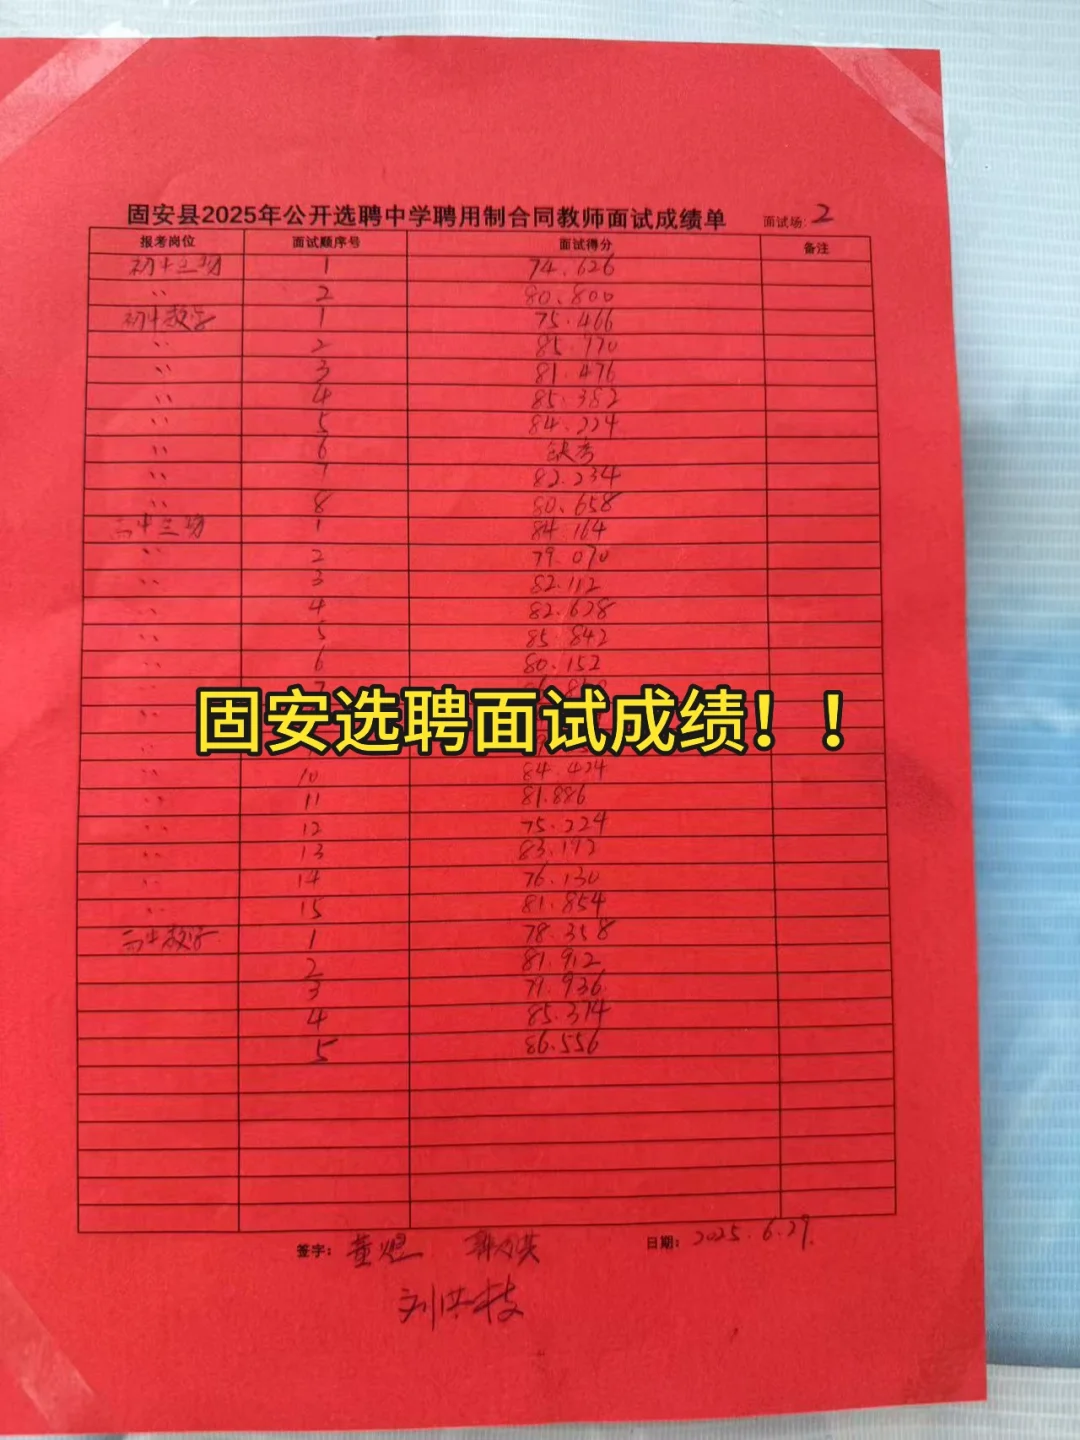 固安县2025年公开选聘中学聘用制合同教师面试成绩单 面试场: 2
报考岗位 面试顺序号 面试得分 备注
初中生物 1 74.626
〃 2 80.800
初中数学 1 75.466
〃 2 85.770
〃 3 81.476
〃 4 85.382
〃 5 84.224
〃 6 缺考
〃 7 82.234
〃 8 80.658
高中生物 1 84.164
〃 2 79.070
〃 3 82.112
〃 4 82.628
〃 5 85.842
〃 6 80.152
〃 7
固安选聘面试成绩！！
〃 10 84.424
〃 11 81.886
〃 12 75.224
〃 13 83.172
〃 14 76.130
〃 15 81.854
高中数学 1 78.358
2 81.912
3 79.936
4 85.374
5 86.556
签字: 董 日期: 2025.6.29.
刘洪枝